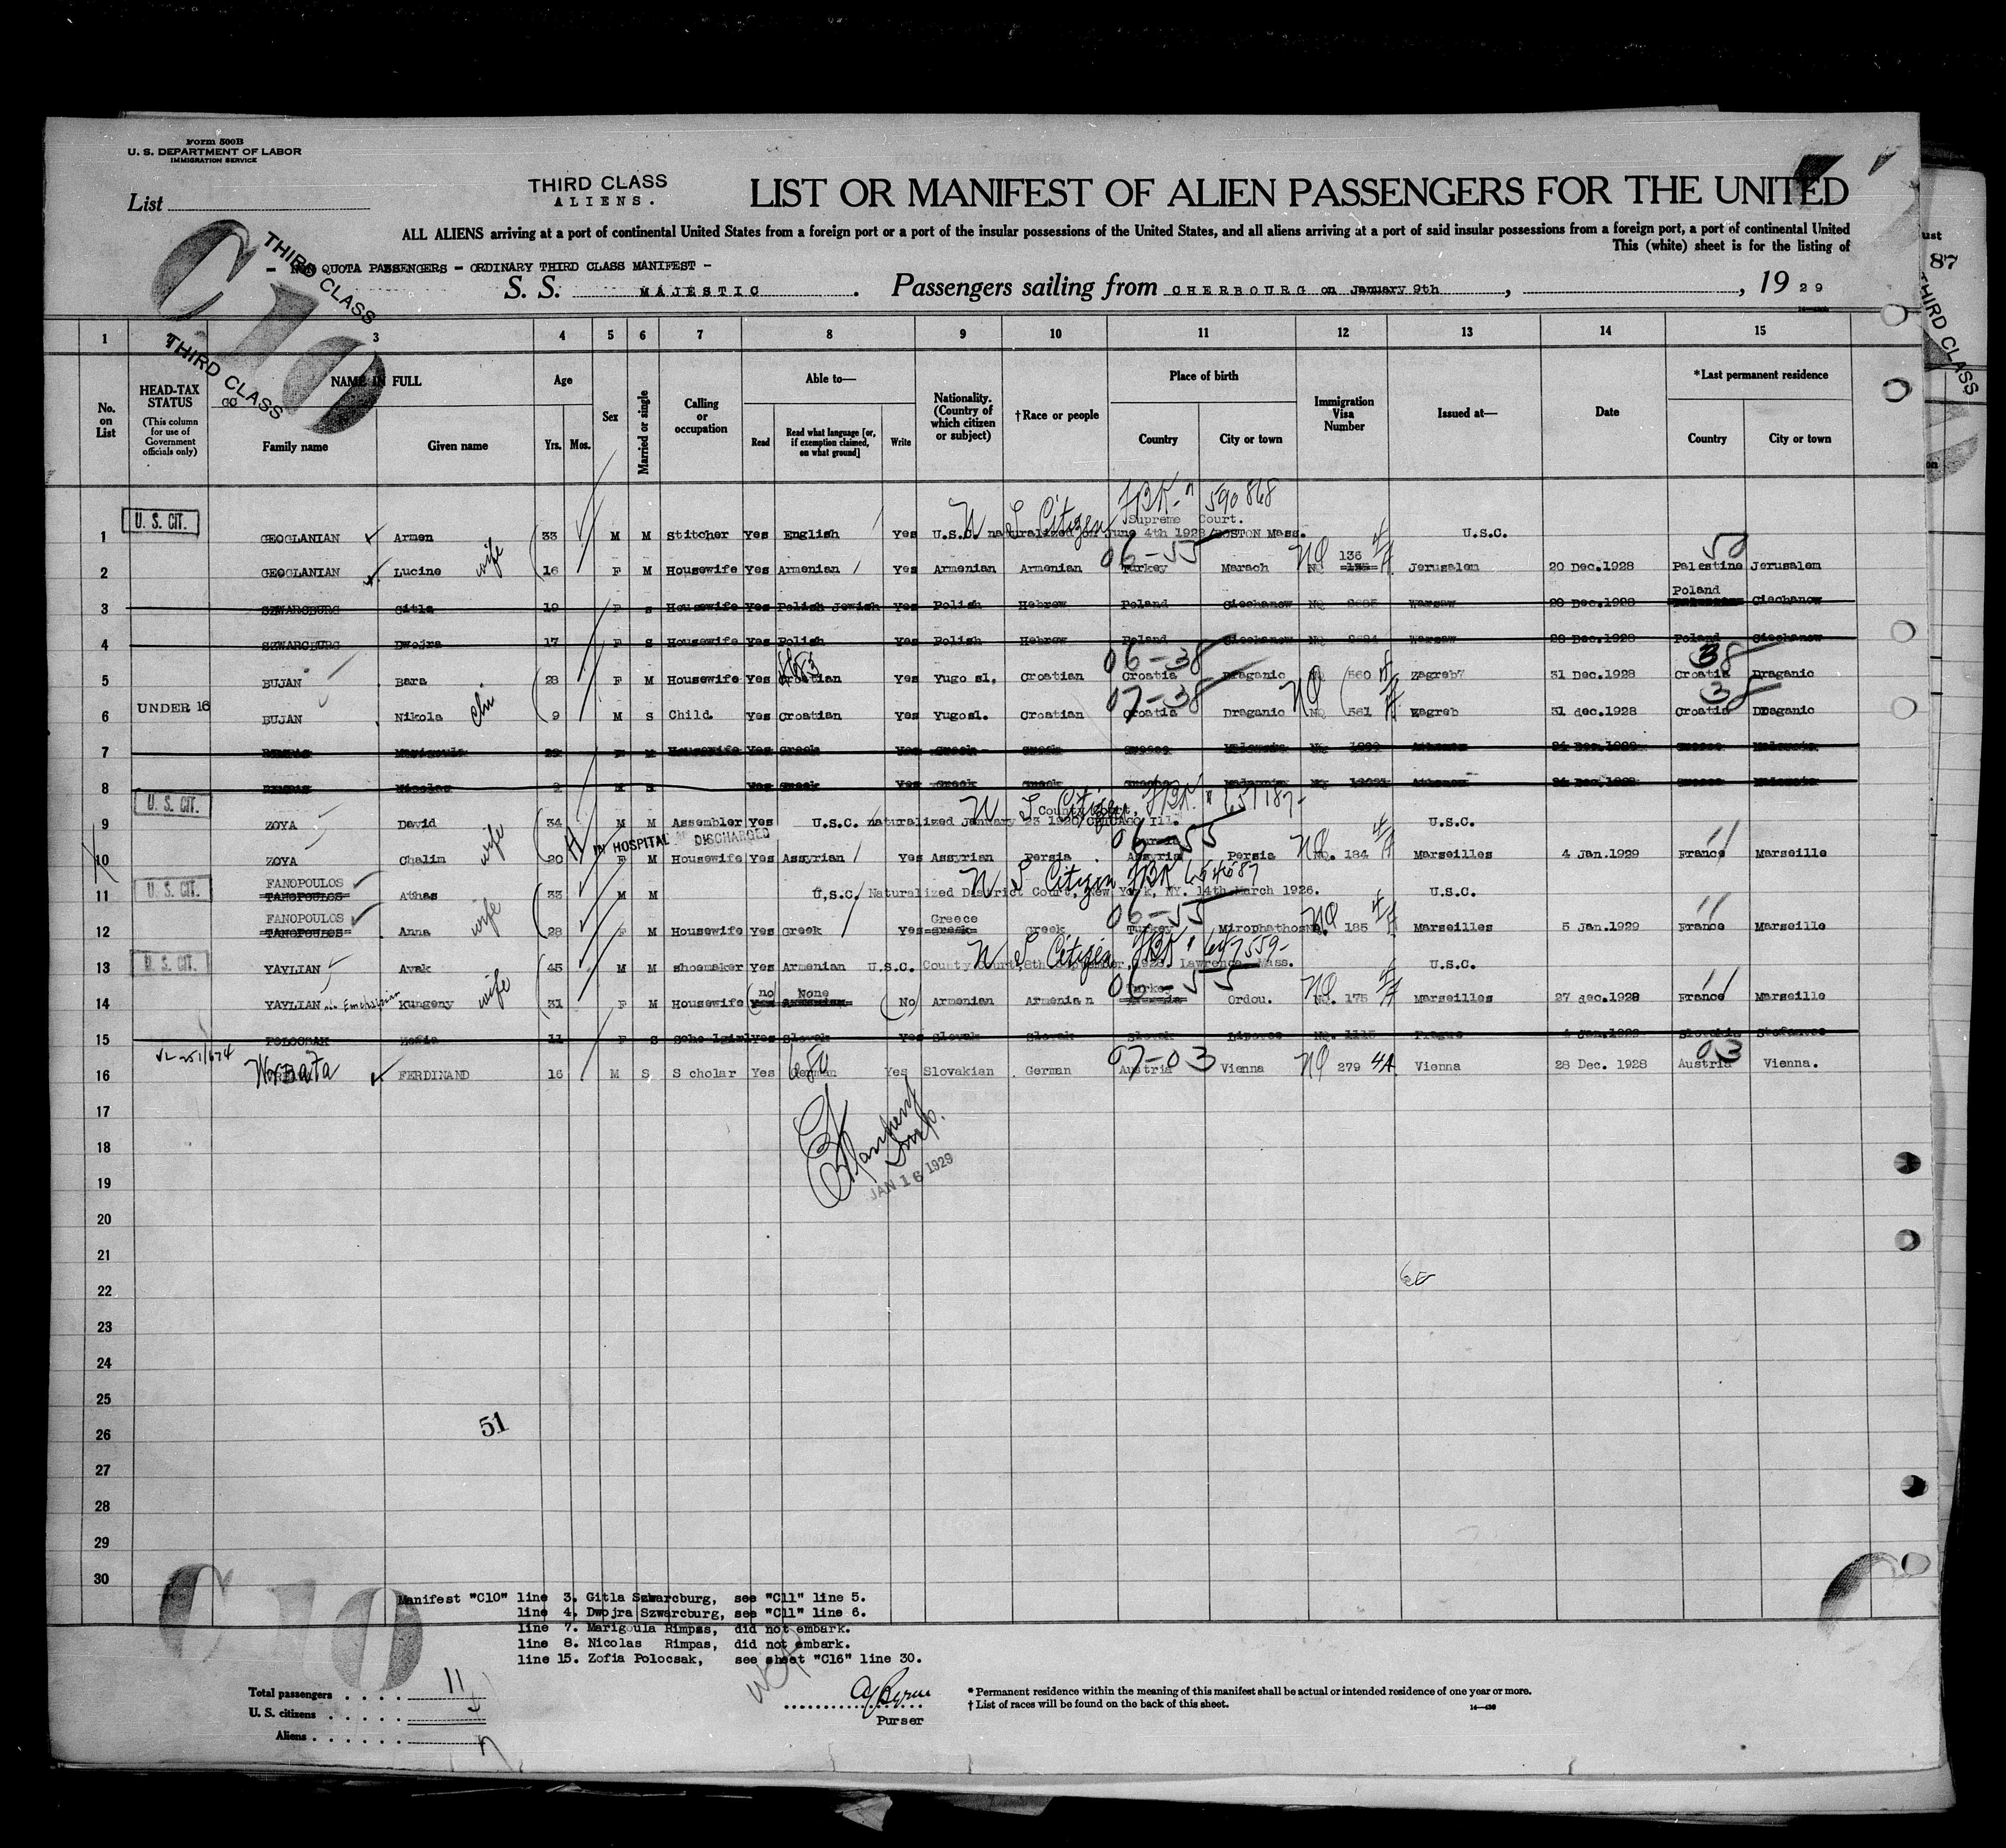 Form 500B
U. S. DEPARTMENT OF LABOR
IMMIGRATION SERVICE
List
THIRD CLASS
ALIENS.
LIST OR MANIFEST OF ALIEN PASSENGERS FOR THE UNITED
ALL ALIENS arriving at a port of continental United States from a foreign port or a port of the insular possessions of the United States, and all aliens arriving at a port of said insular possessions from a foreign port, a port of continental United
This (white) sheet is for the listing of
C10
THIRD CLASS
THIRD CLASS
- NON QUOTA PASSENGERS - ORDINARY THIRD CLASS MANIFEST -
S. S. MAJESTIC. Passengers sailing from CHERBOURG on January 9th, , 19 29
87
THIRD CLASS
1 2 3 4 5 6 7 8 9 10 11 12 13 14 15
No. on List
HEAD-TAX STATUS
(This column for use of Government officials only)
NAME IN FULL
Family name Given name
Age
Yrs. Mos.
Sex
Married or single
Calling or occupation
Able to—
Read Read what language [or, if exemption claimed, on what ground] Write
Nationality. (Country of which citizen or subject)
†Race or people
Place of birth
Country City or town
Immigration Visa Number
Issued at—
Date
*Last permanent residence
Country City or town
U S Citizen 590868
Supreme Court.
1 U. S. CIT. GEOGLANIAN Armen 33 M M Stitcher Yes English Yes U.S.C. naturalized on June 4th 1928 BOSTON Mass. U.S.C.
06-55 50
2 GEOGLANIAN Lucine wife 16 F M Housewife Yes Armenian Yes Armenian Armenian Turkey Marach NQ 136 Jerusalem 20 Dec.1928 Palestine Jerusalem
Poland
3 SZWARCBURG Gitla 19 F S Housewife Yes Polish Jewish Yes Polish Hebrew Poland Ciechanow NQ Warsaw 28 Dec.1928 Ciechanow
4 SZWARCBURG Dwojra 17 F S Housewife Yes Polish Yes Polish Hebrew Poland Ciechanow NQ Warsaw 28 Dec.1928 Poland Ciechanow
06-38 38
5 BUJAN Bara 28 F M Housewife Yes Croatian Yes Yugo sl. Croatian Croatia Draganic NQ 560 Zagreb 31 Dec.1928 Croatia Draganic
07-38 38
6 UNDER 16 BUJAN Nikola chi 9 M S Child. Yes Croatian Yes Yugosl. Croatian Croatia Draganic NQ 561 Zagreb 31 dec.1928 Croatia Draganic
7 RIMPAS Marigoula F M Housewife Yes Greek Yes Greek Greek Greece Athens Greece
8 RIMPAS Nicolas M S Yes Greek Yes Greek Greek Athens Greece
U S Citizen
County Court,
9 U. S. CIT. ZOYA David 34 M M Assembler Yes U.S.C. naturalized January 23 1926 CHICAGO Ill. U.S.C.
IN HOSPITAL DISCHARGED
06-55 11
10 ZOYA Chalim wife 20 F M Housewife Yes Assyrian Yes Assyrian Persia Persia NQ. 184 Marseilles 4 Jan.1929 France Marseille
U S Citizen
FANOPOULOS
11 U. S. CIT. TANOPOULOS Athas 33 M M U.S.C. Naturalized District Court, New York, NY. 14th March 1926. U.S.C.
FANOPOULOS Greece 06-55 11
12 TANOPOULOS Anna wife 28 F M Housewife Yes Greek Yes Greek Greek Turkey Mirophathos NQ. 185 Marseilles 5 Jan.1929 France Marseille
U S Citizen
13 U. S. CIT. YAYLIAN Avak 45 M M shoemaker Yes Armenian U.S.C. County Court 8th 1928 Lawrence Mass. U.S.C.
no None 06-55 Turkey 11
14 YAYLIAN Kungeny wife 31 F M Housewife Yes Armenian No Armenian Armenian Ordou. NQ. 175 Marseilles 27 dec.1928 France Marseille
15 POLOCSAK Zofia 11 F S Scholgirl Yes Slovak Yes Slovak Slovak Slovak NQ. 1115 Prague 4 Jan.1929 Slovakia
07-03 03
16 FERDINAND 16 M S Scholar Yes German Yes Slovakian German Austria Vienna NQ 279 4A Vienna 28 Dec. 1928 Austria Vienna.
17
18
19
JAN 16 1929
20
21
22
23
24
25
26
51
27
28
29
30
C10
Manifest "C10" line 3. Gitla Szwarcburg, see "C11" line 5.
line 4. Dwojra Szwarcburg, see "C11" line 6.
line 7. Marigoula Rimpas, did not embark.
line 8. Nicolas Rimpas, did not embark.
line 15. Zofia Polocsak, see sheet "C16" line 30.
Total passengers . . . . 11
U. S. citizens . . . . .
Aliens . . . . . . 7
Purser
* Permanent residence within the meaning of this manifest shall be actual or intended residence of one year or more.
† List of races will be found on the back of this sheet.